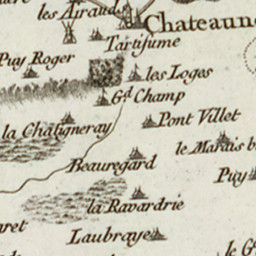 les Airauds
Chateaune
Tartifume
Puy Roger
les Loges
Gd Champ
Pont Villet
la Chatigneray
le Marais b
Beauregard
Puy
la Ravardrie
ret
Laubraye
le G